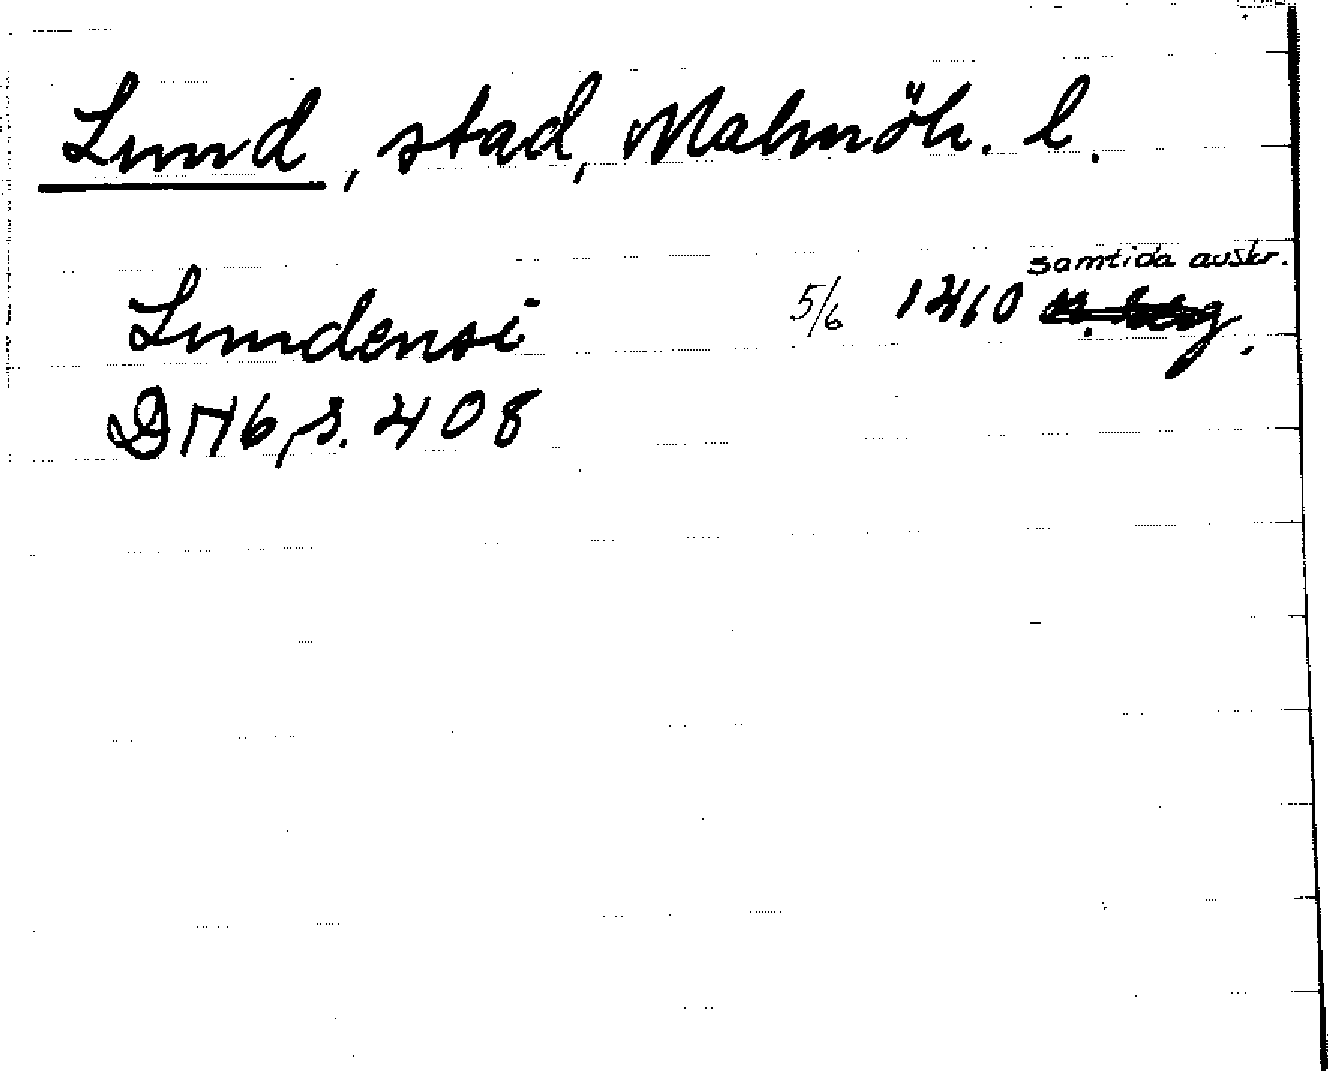 Lund, stad, Malmöh. l.
samtida avskr.
Lundensi 5/6 1410
DN 6, s. 408